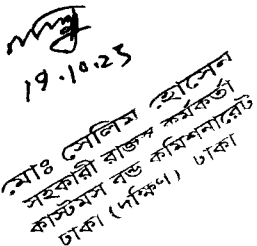 19.10.23
মোঃ সেলিম হোসেন
সহকারী রাজস্ব কর্মকর্তা
কাস্টমস বন্ড কমিশনারেট
ঢাকা (দক্ষিণ) ঢাকা